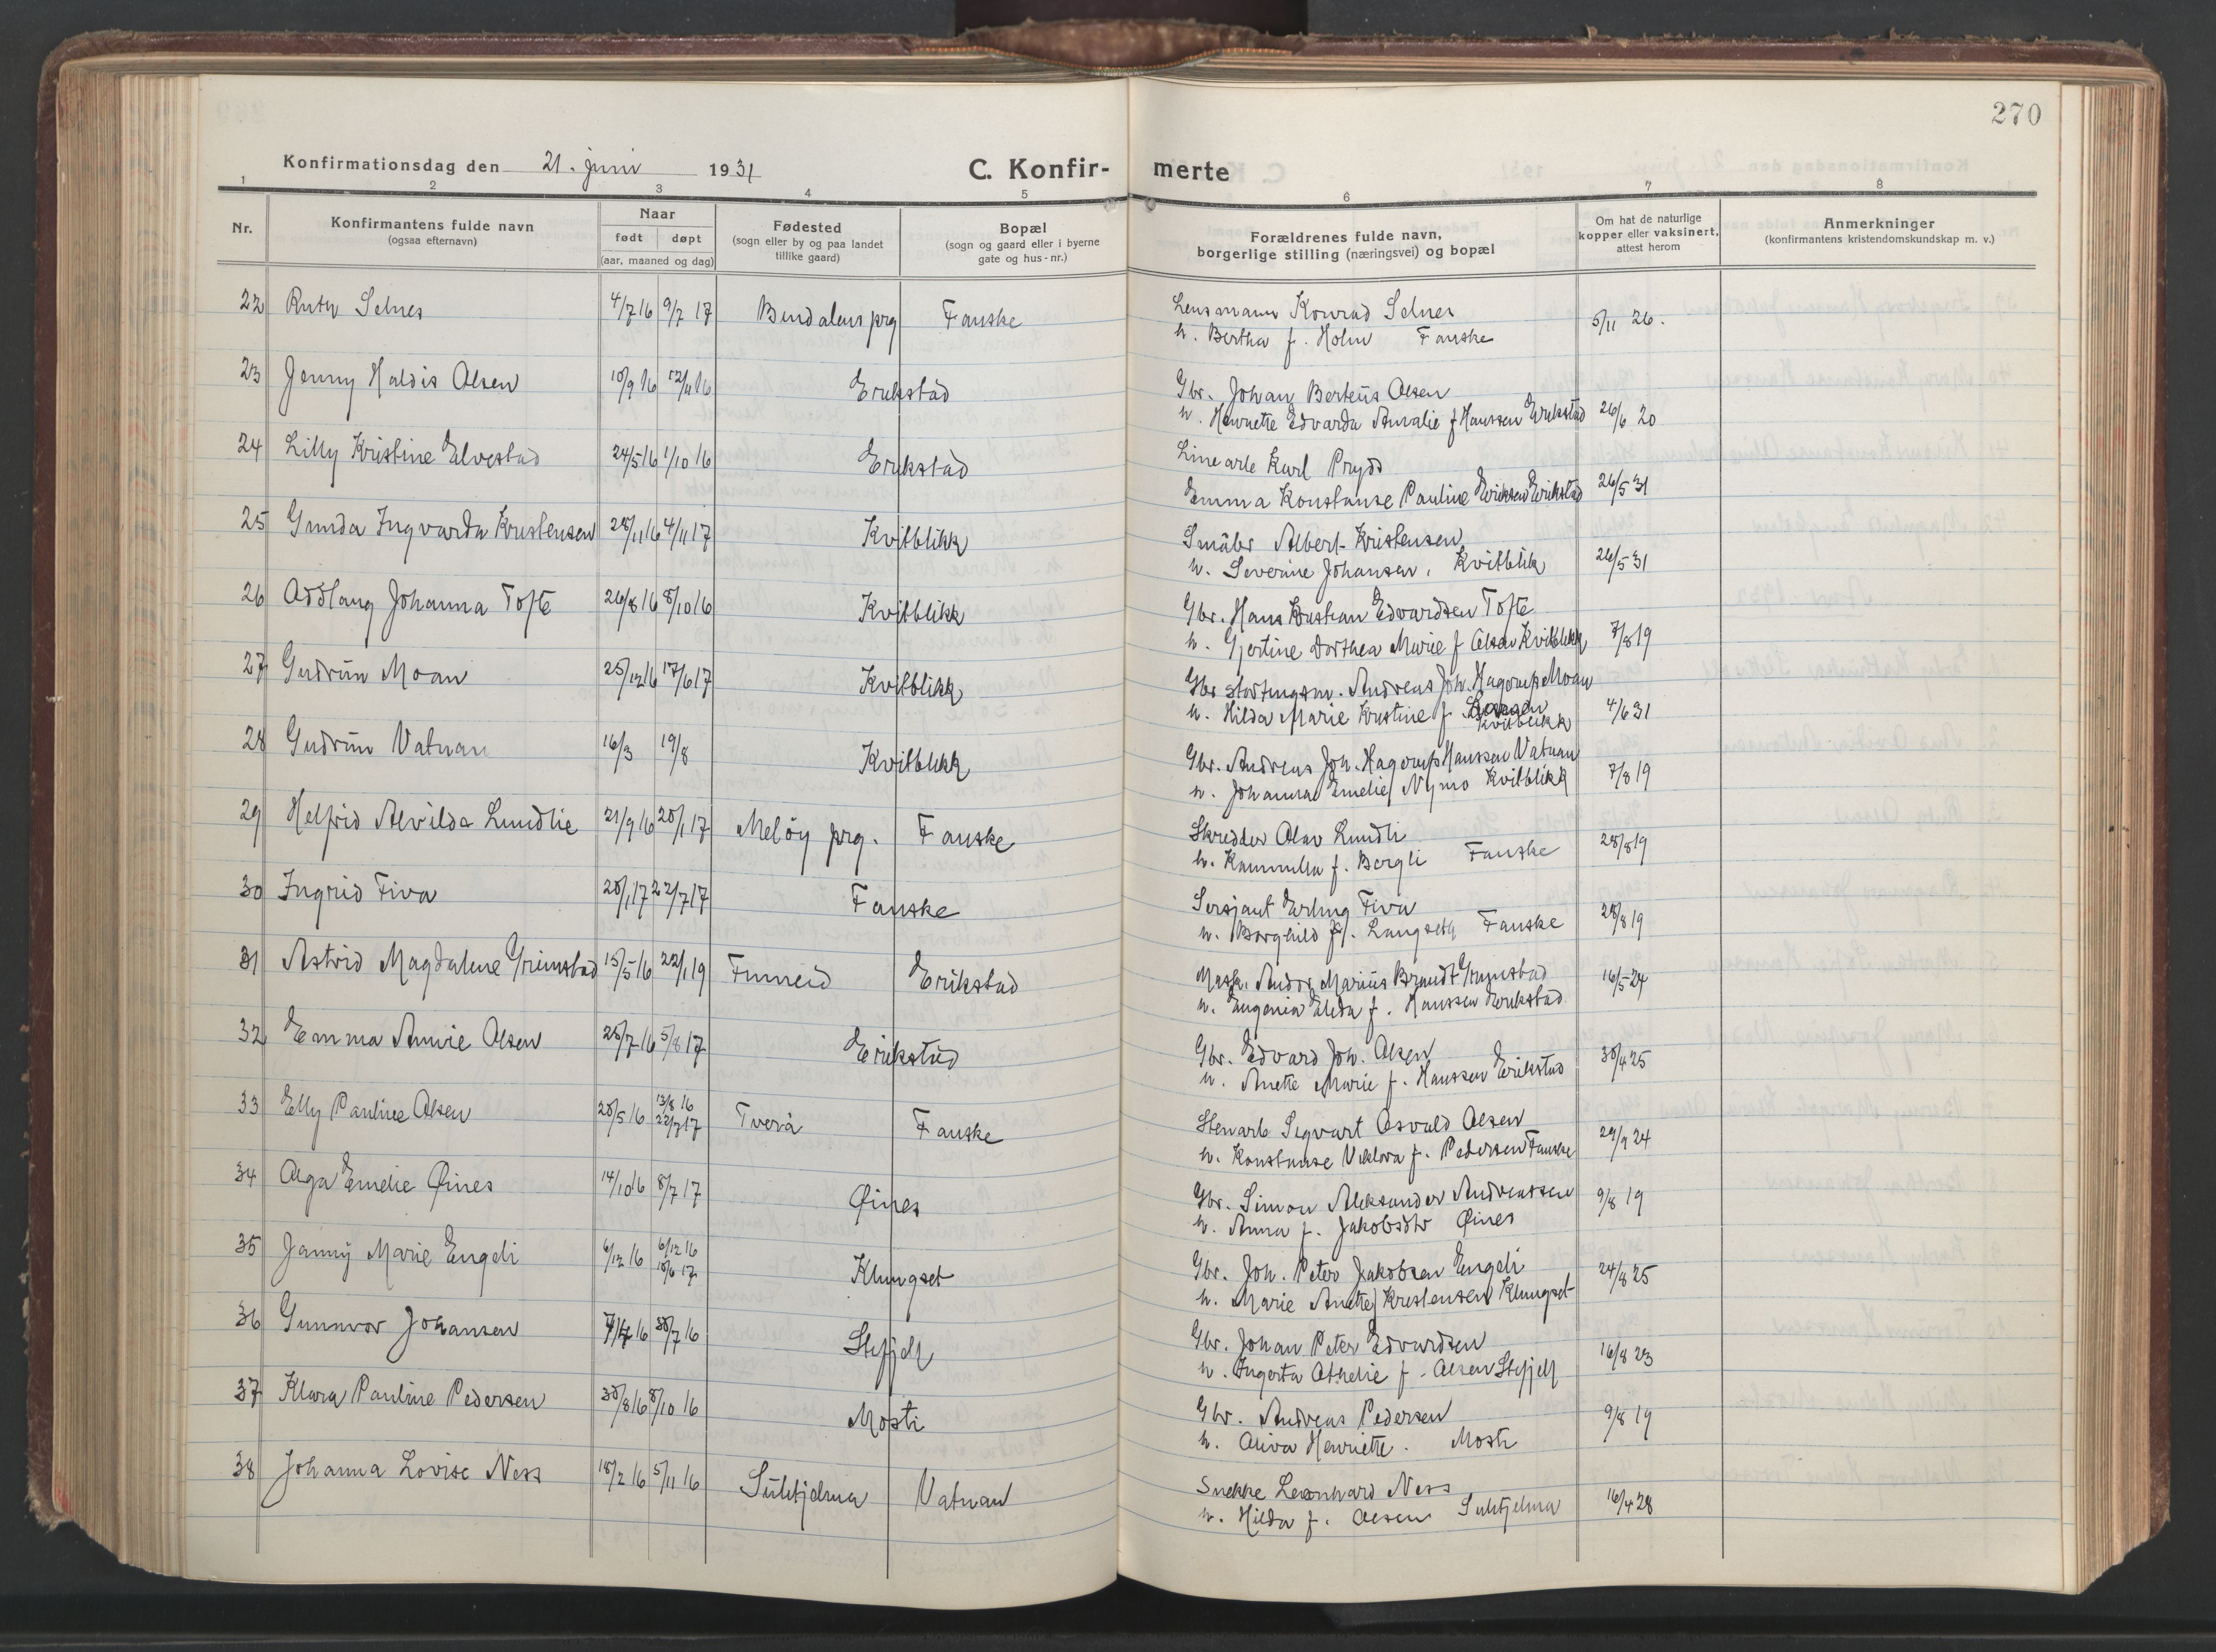 270
Konfirmationsdag den 21. juni 1931 C. Konfir- merte
1 2 3 4 5 6 7 8
Nr. Konfirmantens fulde navn (ogsaa efternavn) Naar født døpt (aar, maaned og dag) Fødested (sogn eller by og paa landet tillike gaard) Bopæl (sogn og gaard eller i byerne gate og hus-nr.) Forældrenes fulde navn, borgerlige stilling (næringsvei) og bopæl Om hat de naturlige kopper eller vaksinert, attest herom Anmerkninger (konfirmantens kristendomskundskap m. v.)
22 Ruth Selnes 4/7 16 9/7 17 Bindalens prg Fauske Lensmann Konrad Selnes 5/11 26.
h. Bertha f. Holm Fauske
23 Jenny Haldis Olsen 10/9 16 12/11 16 Erikstad Gbr. Johan Berteus Olsen
h. Henriette Edvarda Amalie f Hanssen Erikstad 26/6 20
24 Lilly Kristine Elvestad 24/5 16 1/10 16 Erikstad Linearb Karl Prydd
Emma Konstanse Pauline Eriksen Erikstad 26/5 31
25 Gunda Ingvarda Kristensen 28/11 16 4/11 17 Kvitblikk Småbr Albert Kristensen
h. Severine Johansen, Kvitblik 26/5 31
26 Oddlaug Johanna Tofte 26/8 16 8/10 16 Kvitblikk Gbr. Hans Kristian Edvardsen Tofte
h. Gjertine Dorthea Marie f Olsen Kvitblikk 7/8 19
27 Gudrun Moan 25/12 16 17/6 17 Kvitblikk Gbr stortingsm. Andreas Joh. Hagerup Moan
h. Hilda Marie Kristine f. Larsen 4/6 31
Kvitblikk
28 Gudrun Vatnan 16/3 19/8 Kvitblikk Gbr. Andreas Joh. Hagerup Hanssen Vatnan
h. Johanna Emelie Nymo Kvitblikk 7/8 19
29 Helfrid Alvilda Lundlie 21/9 16 28/1 17 Meløy prg. Fauske Skredder Olav Lundli
h. Kammilla f. Bergli Fauske 28/8 19
30 Ingrid Fiva 28/1 17 22/7 17 Fauske Sersjant Erling Fiva
h. Borghild f. Langseth Fauske 28/8 19
31 Astrid Magdalene Grimstad 15/5 16 22/1 19 Finneid Erikstad Mask. Andr. Marius Brandt Grimstad 16/5 27
h. Eugenia Elida f. Hanssen Erikstad
32 Emma Annie Olsen 28/7 16 5/8 17 Erikstad Gbr. Edvard Joh. Olsen
h. Anette Marie f. Hanssen Erikstad 30/4 25
33 Elly Pauline Olsen 28/5 16 13/8 16 22/7 17 Tverå Fauske Stenarb Sigvart Osvald Olsen
h. Konstanse Viktora f. Pedersen Fauske 29/9 24
34 Olga Emelie Øines 14/10 16 8/7 17 Øines Gbr. Simon Aleksander Andreassen 9/8 19
h. Anna f. Jakobsdtr Øines
35 Janny Marie Engeli 6/12 16 6/12 16 10/6 17 Klungset Gbr. Joh. Peter Jakobsen Engeli 24/8 25
h. Marie Anette f Kristensen Klungset
36 Gunnvor Johansen 16 30/7 16 Stifjell Gbr. Johan Peter Edvardsen
h. Ingerta Othelie f. Olsen Stifjell 16/8 23
37 Klara Pauline Pedersen 30/8 16 8/10 16 Mosti Gbr. Andreas Pedersen 9/8 19
h. Oliva Henriette. Mosti
38 Johanna Lovise Ness 18/2 16 5/11 16 Sulitjelma Vatnan Snekke Leonhard Ness 16/4 28
h. Hilda f. Olsen Sulitjelma